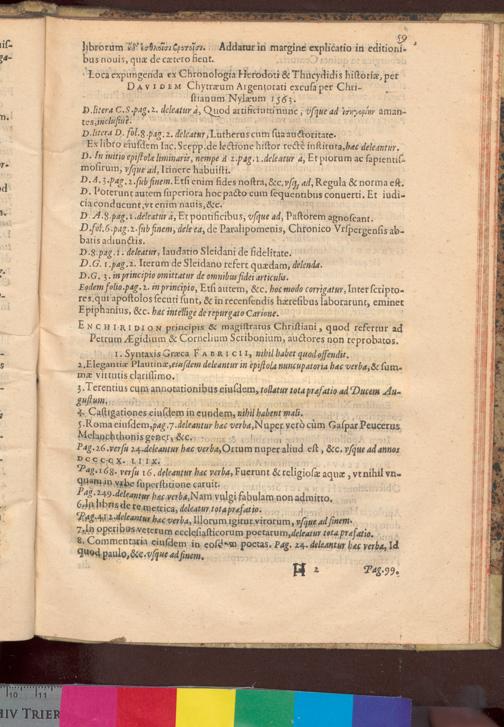 59
librorum Addatur in margine explicatio in editioni-
bus nouis, quæ de cætero fient.
Loca expungenda ex Chronologia Herodoti & Thucydidis historiæ, per
DAVIDEM Chytræum Argentorati excusa per Chri-
stianum Nylæum 1563.
D. litera C.8. pag. 2. deleatur à, Quod artificium nunc, vsque ad aman-
tes, inclusiuè.
D. litera D. fol. 8. pag. 2. deleatur, Lutherus cum sua auctoritate.
Ex libro eiusdem Iac. Scepp. de lectione histor rectè instituta, hac deleantur.
D. In initio epistolæ liminaris, nempe à 2. pag. 1. deleatur à, Et piorum ac sapientis-
mosirum, vsque ad, Itinere habuisti.
D. A. 3. pag. 2. sub finem. Etsi enim fides nostra, &c. vsq, ad, Regula & norma est.
D. Poterunt autem superiora hoc pacto cum sequentibus conuerti. Et iudi-
cia conducunt, vt enim nauis, &c.
D A. 8. pag. 1. deleatur à, Et pontificibus, vsque ad, Pastorem agnoscant.
D. fol. 6. pag. 2. sub finem, dele ea, de Paralipomenis, Chronico Vrspergensis ab-
batis adiunctis.
D. 8. pag. 1. deleatur, laudatio Sleidani de fidelitate.
D. G. 1. pag. 2. Iterum de Sleidano refert quædam, delenda.
D. G. 3. in principio omittatur de omnibus fidei articulis.
Eodem folio. pag. 2. in principio, Etsi autem, &c. hoc modo corrigatur, Inter scripto-
res, qui apostolos secuti sunt, & in recensendis hæresibus laborarunt, eminet
Epiphanius, &c. hac intellige de repurgato Carione.
ENCHIRIDION principis & magistratus Christiani, quod refertur ad
Petrum Ægidium & Cornelium Scribonium, auctores non reprobatos.
1. Syntaxis Græca FABRICII, nihil habet quod offendit.
2. Elegantiæ Plautinæ, eiusdem deleantur in epistola nuncupatoria hac verba, & sum-
mæ virtutis clarissimo.
3. Terentius cum annotationibus eiusdem, tollatur tota præfatio ad Ducem Au-
gustum.
4. Castigationes eiusdem in eundem, nihil habent mali.
5. Roma eiusdem, pag. 7. deleantur hac verba, Nuper verò cùm Gaspar Peucerus
Melanchthonis gener, &c.
Pag. 26. versu 24. deleantur hac verba, Ortum nuper aliud est, &c. vsque ad annos
DCCCCX. LIIX.
Pag. 168. versu 16. deleantur hac verba, Fuerunt & religiosæ aquæ, vt nihil vn-
quam in vrbe superstitione caruit.
Pag. 249. deleantur hac verba, Nam vulgi fabulam non admitto.
6. In libris de re metrica, deleatur tota præfatio.
Pag. 412. deleantur hac verba, Illorum igitur virorum, vsque ad finem.
7. In operibus veterum ecclesiasticorum poetarum, deleatur tota præfatio.
8. Commentaria eiusdem in eosdem poetas. Pag. 24. deleantur hac verba, Id
quod paulo, &c. vsque ad finem.
H 2 Pag. 99.
10 11
HIV TRIER